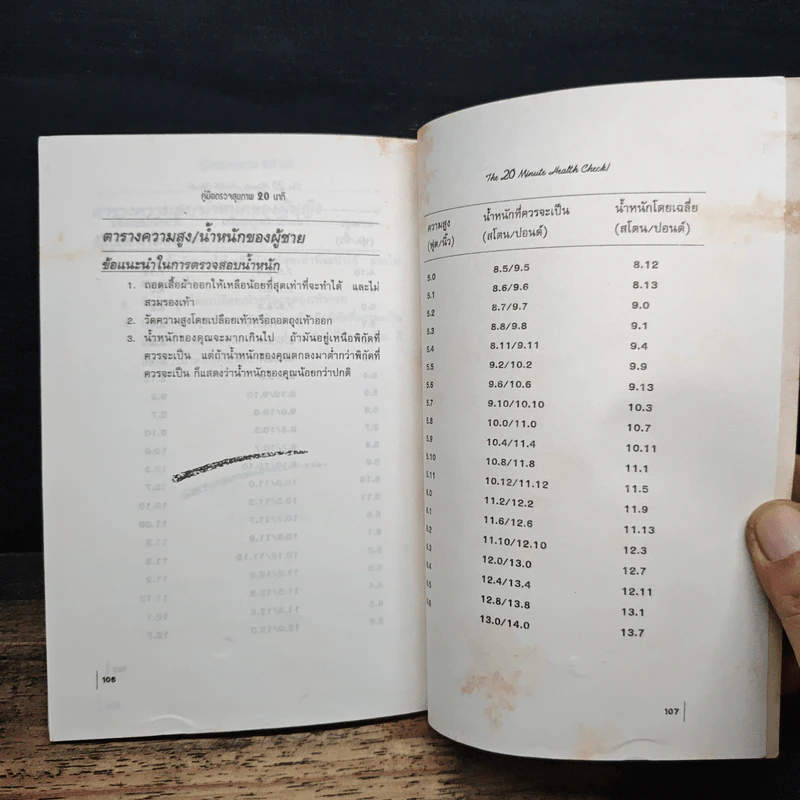 คู่มือตรวจสุขภาพ 20 นาที
ตารางความสูง/น้ำหนักของผู้ชาย
ข้อแนะนำในการตรวจสอบน้ำหนัก
1. ถอดเสื้อผ้าออกให้เหลือน้อยที่สุดเท่าที่จะทำได้ และไม่
สวมรองเท้า
2. วัดความสูงโดยเปลือยเท้าหรือถอดถุงเท้าออก
3. น้ำหนักของคุณจะมากเกินไป ถ้ามันอยู่เหนือพิกัดที่
ควรจะเป็น แต่ถ้าน้ำหนักของคุณตกลงมาต่ำกว่าพิกัดที่
ควรจะเป็น ก็แสดงว่าน้ำหนักของคุณน้อยกว่าปกติ
106
The 20 Minute Health Check!
ความสูง น้ำหนักที่ควรจะเป็น น้ำหนักโดยเฉลี่ย
(ฟุต/นิ้ว) (สโตน/ปอนด์) (สโตน/ปอนด์)
5.0 8.5/9.5 8.12
5.1 8.6/9.6 8.13
5.2 8.7/9.7 9.0
5.3 8.8/9.8 9.1
5.4 8.11/9.11 9.4
5.5 9.2/10.2 9.9
5.6 9.6/10.6 9.13
5.7 9.10/10.10 10.3
5.8 10.0/11.0 10.7
5.9 10.4/11.4 10.11
5.10 10.8/11.8 11.1
5.11 10.12/11.12 11.5
6.0 11.2/12.2 11.9
6.1 11.6/12.6 11.13
6.2 11.10/12.10 12.3
6.3 12.0/13.0 12.7
6.4 12.4/13.4 12.11
6.5 12.8/13.8 13.1
6.6 13.0/14.0 13.7
107